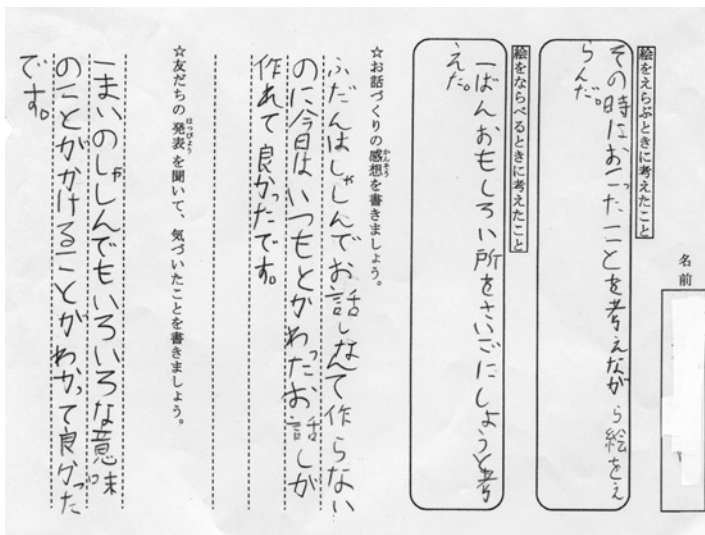 名前
絵をえらぶときに考えたこと
その時におこったことを考えながら絵をえ
らんだ。
絵をならべるときに考えたこと
一ばんおもしろい所をさいごにしようと考
えた。
☆お話づくりの感想を書きましょう。
かんそう
ふだんはしゃしんでお話しなんて作らない
のに今日はいつもとかわったお話しが
作れて良かったです。
☆友だちの発表を聞いて、気づいたことを書きましょう。
はっぴょう
一まいのしゃしんでもいろいろな意味
のことがかけることがわかって良かった
です。